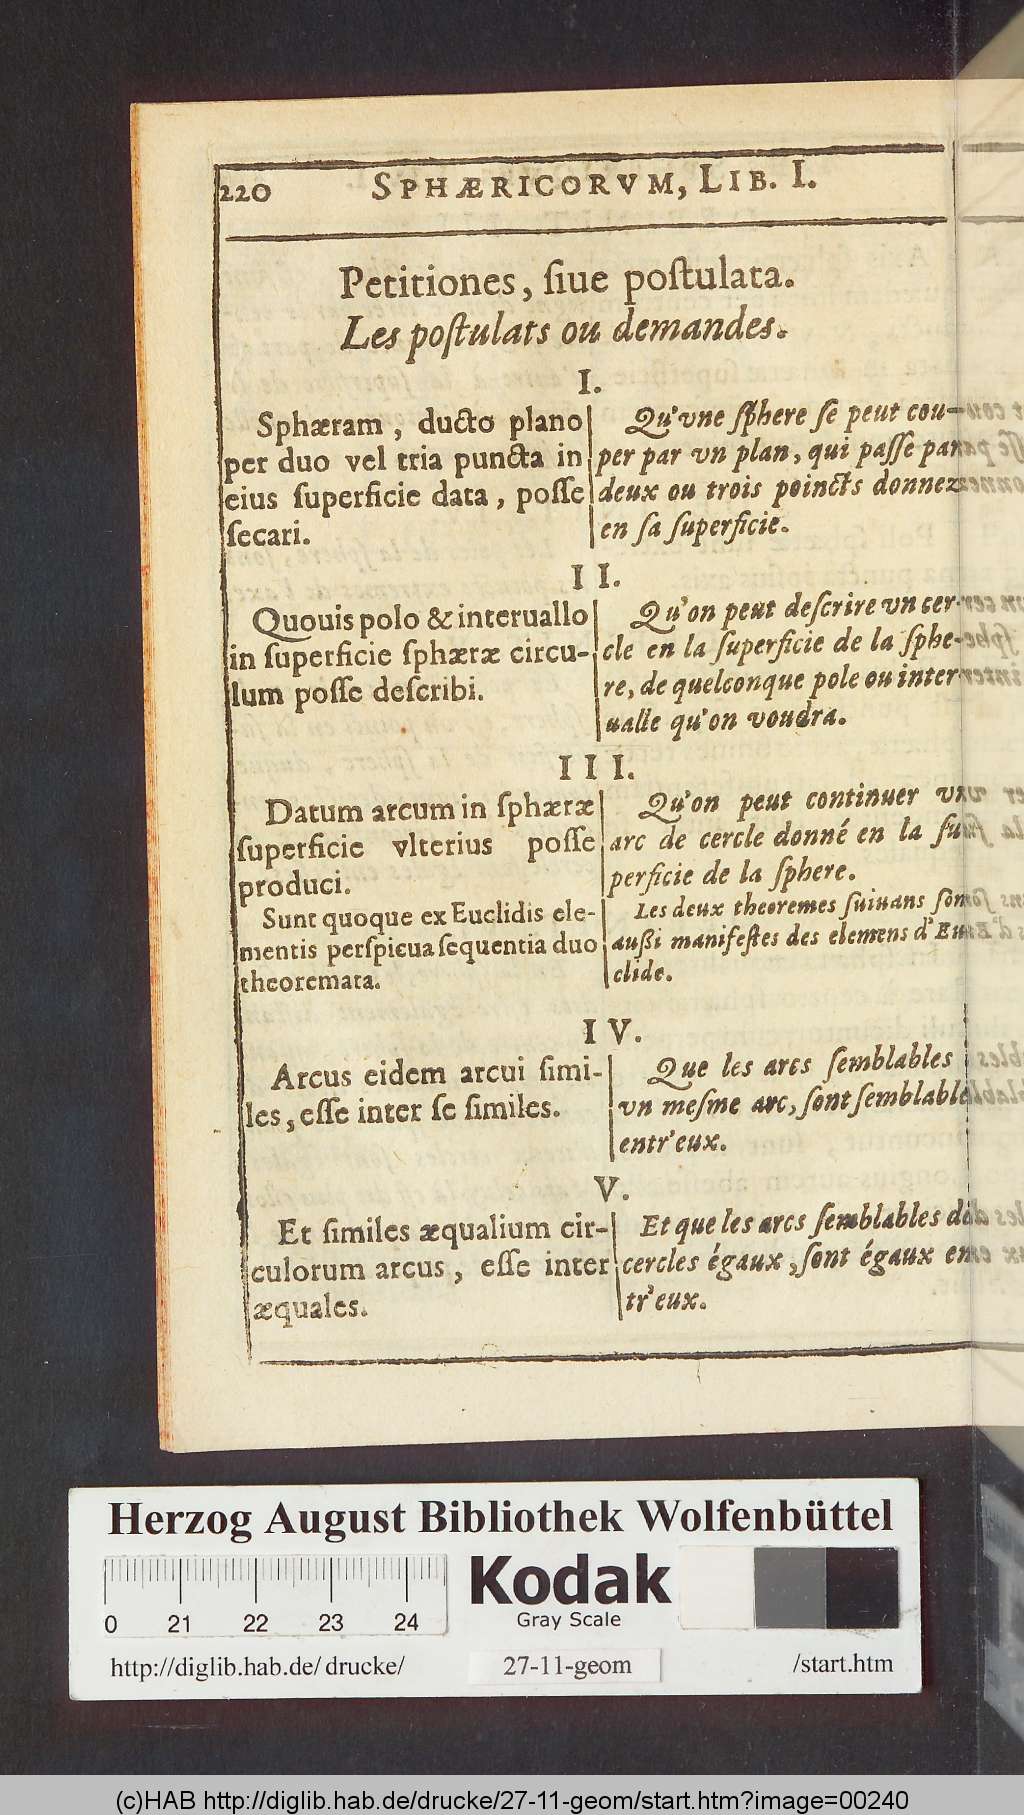 220 SPHÆRICORVM, LIB. I.
Petitiones, ſiue poſtulata.
Les poſtulats ou demandes.
I.
Sphæram, ducto plano
per duo vel tria puncta in
eius ſuperficie data, poſſe
ſecari.
Qu'vne ſphere ſe peut cou-
per par vn plan, qui paſſe par
deux ou trois poincts donnez
en ſa ſuperficie.
II.
Quouis polo & interuallo
in ſuperficie ſphæræ circu-
lum poſſe deſcribi.
Qu'on peut deſcrire vn cer-
cle en la ſuperficie de la ſphe-
re, de quelconque pole ou inter
ualle qu'on voudra.
III.
Datum arcum in ſphæræ
ſuperficie vlterius poſſe
produci.
Sunt quoque ex Euclidis ele-
mentis perſpicua ſequentia duo
theoremata.
Qu'on peut continuer vn
arc de cercle donné en la ſu
perficie de la ſphere.
Les deux theoremes ſuiuans ſont
außi manifeſtes des elemens d'Eu
clide.
IV.
Arcus eidem arcui ſimi-
les, eſſe inter ſe ſimiles.
Que les arcs ſemblables
vn meſme arc, ſont ſemblables
entr'eux.
V.
Et ſimiles æqualium cir-
culorum arcus, eſſe inter
æquales.
Et que les arcs ſemblables de
cercles égaux, ſont égaux en
tr'eux.
Herzog August Bibliothek Wolfenbüttel
0 21 22 23 24
Kodak
Gray Scale
http://diglib.hab.de/ drucke/ 27-11-geom /start.htm
(c)HAB http://diglib.hab.de/drucke/27-11-geom/start.htm?image=00240